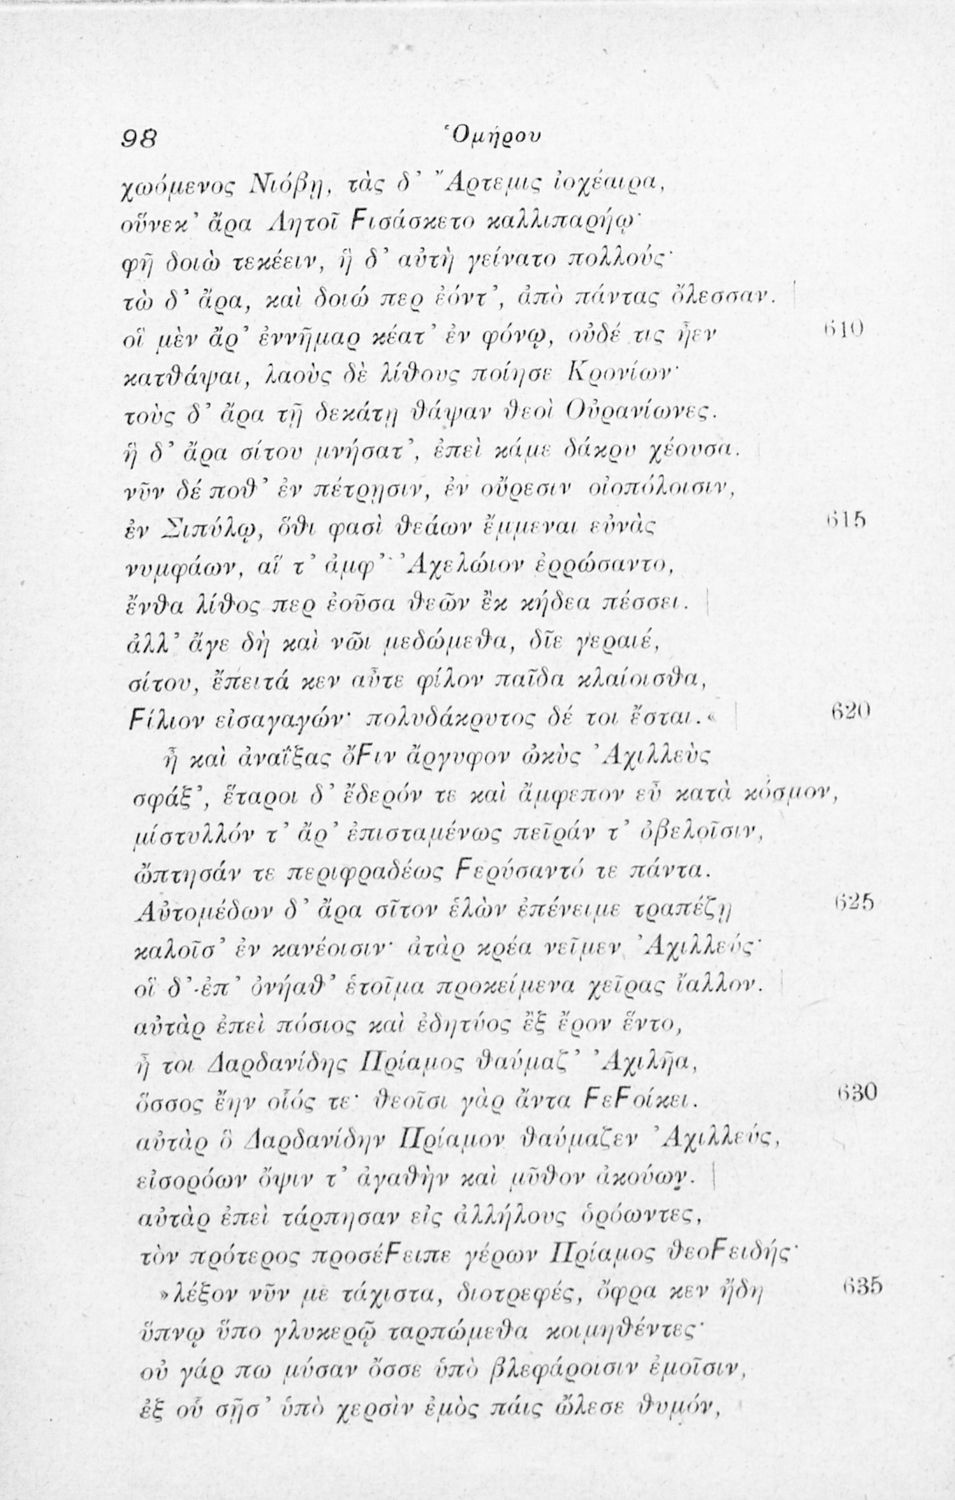 98 Ὁμήρου
χωόμενος Νιόβῃ, τὰς δ’ Ἄρτεμις ἰοχέαιρα,
οὕνεκ’ ἄρα Λητοῖ ϝισάσκετο καλλιπαρήῳ·
φῆ δοιὼ τεκέειν, ἣ δ’ αὐτὴ γείνατο πολλούς·
τὼ δ’ ἄρα, καὶ δοιώ περ ἐόντ’, ἀπὸ πάντας ὄλεσσαν.
οἳ μὲν ἄρ’ ἐννῆμαρ κέατ’ ἐν φόνῳ, οὐδέ τις ἦεν 610
κατθάψαι, λαοὺς δὲ λίθους ποίησε Κρονίων·
τοὺς δ’ ἄρα τῇ δεκάτῃ θάψαν θεοὶ Οὐρανίωνες.
ἣ δ’ ἄρα σίτου μνήσατ’, ἐπεὶ κάμε δάκρυ χέουσα.
νῦν δέ ποθ’ ἐν πέτρῃσιν, ἐν οὔρεσιν οἰοπόλοισιν,
ἐν Σιπύλῳ, ὅθι φασὶ θεάων ἔμμεναι εὐνὰς 615
νυμφάων, αἵ τ’ ἀμφ’ Ἀχελώιον ἐρρώσαντο,
ἔνθα λίθος περ ἐοῦσα θεῶν ἒκ κήδεα πέσσει.
ἀλλ’ ἄγε δὴ καὶ νῶι μεδώμεθα, δῖε γεραιέ,
σίτου, ἔπειτά κεν αὖτε φίλον παῖδα κλαίοισθα,
ϝίλιον εἰσαγαγών· πολυδάκρυτος δέ τοι ἔσται.« 620
ἦ καὶ ἀναΐξας ὄϝιν ἄργυφον ὠκὺς Ἀχιλλεὺς
σφάξ’, ἕταροι δ’ ἔδερόν τε καὶ ἄμφεπον εὖ κατὰ κόσμον,
μίστυλλόν τ’ ἄρ’ ἐπισταμένως πεῖράν τ’ ὀβελοῖσιν,
ὤπτησάν τε περιφραδέως ϝερύσαντό τε πάντα.
Αὐτομέδων δ’ ἄρα σῖτον ἑλὼν ἐπένειμε τραπέζῃ 625
καλοῖσ’ ἐν κανέοισιν· ἀτὰρ κρέα νεῖμεν Ἀχιλλεύς·
οἳ δ’ ἐπ’ ὀνήαθ’ ἑτοῖμα προκείμενα χεῖρας ἴαλλον.
αὐτὰρ ἐπεὶ πόσιος καὶ ἐδητύος ἒξ ἔρον ἕντο,
ἦ τοι Δαρδανίδης Πρίαμος θαύμαζ’ Ἀχιλῆα,
ὅσσος ἔην οἷός τε· θεοῖσι γὰρ ἄντα ϝεϝοίκει. 630
αὐτὰρ ὃ Δαρδανίδην Πρίαμον θαύμαζεν Ἀχιλλεύς,
εἰσορόων ὄψιν τ’ ἀγαθὴν καὶ μῦθον ἀκούων.
αὐτὰρ ἐπεὶ τάρπησαν εἰς ἀλλήλους ὁρόωντες,
τὸν πρότερος προσέϝειπε γέρων Πρίαμος θεοϝειδής·
»λέξον νῦν με τάχιστα, διοτρεφές, ὄφρα κεν ἤδη 635
ὕπνῳ ὕπο γλυκερῷ ταρπώμεθα κοιμηθέντες·
οὐ γάρ πω μύσαν ὄσσε ὑπὸ βλεφάροισιν ἐμοῖσιν,
ἐξ οὗ σῇσ’ ὑπὸ χερσὶν ἐμὸς πάις ὤλεσε θυμόν,